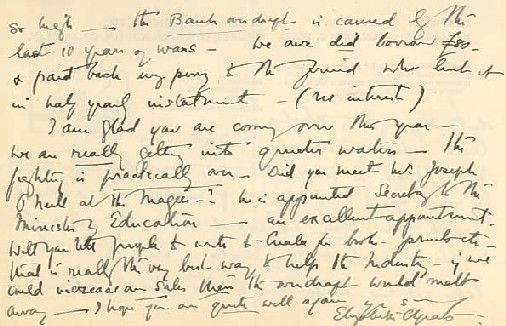 so high — the Bank overdraft is caused by the
last 10 years of wars — we once did borrow £80 -
& paid back every penny to the friend who lent it
in half yearly instalment — (no interest)
I am glad you are coming over this year —
we are really getting into quieter waters — The
fighting is practically over — Did you meet Mr. Joseph
O'Neill at the Magee —? he is appointed Secretary to the
Ministry of Education — an excellent appointment.
Will you tell people to write to Cuala for books - prints etc -
that is really the very best way to help the Industry — if we
could increase our sales then the overdraft would melt
away — I hope you are quite well again
Elizabeth C Yeats —